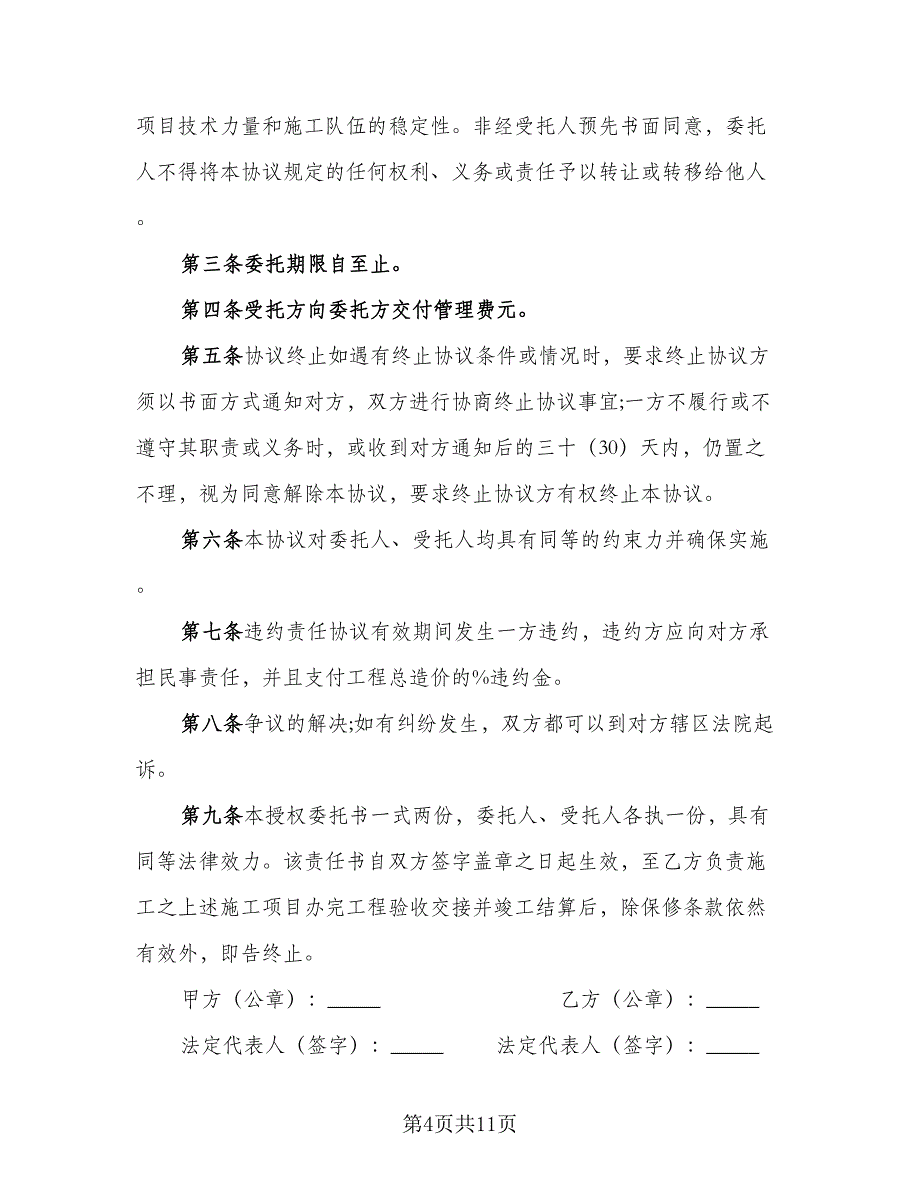 项目技术力量和施工队伍的稳定性。非经受托人预先书面同意，委托
人不得将本协议规定的任何权利、义务或责任予以转让或转移给他人
。
第三条委托期限自至止。
第四条受托方向委托方交付管理费元。
第五条协议终止如遇有终止协议条件或情况时，要求终止协议方
须以书面方式通知对方，双方进行协商终止协议事宜;一方不履行或不
遵守其职责或义务时，或收到对方通知后的三十（30）天内，仍置之
不理，视为同意解除本协议，要求终止协议方有权终止本协议。
第六条本协议对委托人、受托人均具有同等的约束力并确保实施
。
第七条违约责任协议有效期间发生一方违约，违约方应向对方承
担民事责任，并且支付工程总造价的%违约金。
第八条争议的解决;如有纠纷发生，双方都可以到对方辖区法院起
诉。
第九条本授权委托书一式两份，委托人、受托人各执一份，具有
同等法律效力。该责任书自双方签字盖章之日起生效，至乙方负责施
工之上述施工项目办完工程验收交接并竣工结算后，除保修条款依然
有效外，即告终止。
甲方（公章）：_____ 乙方（公章）：_____
法定代表人（签字）：_____ 法定代表人（签字）：_____
第4页共11页